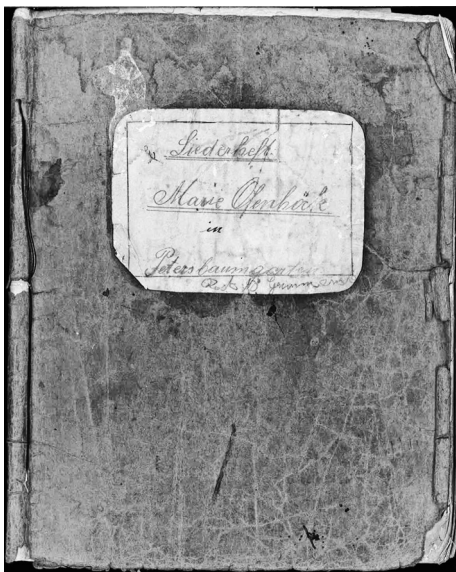 Liederheft.
Marie Ofenböck
in
Petersbaumgarten